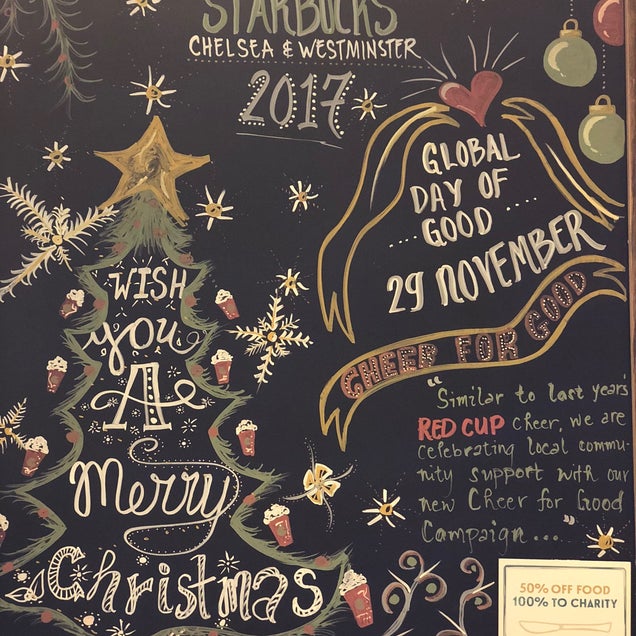 STARBUCKS
CHELSEA & WESTMINSTER
2017
GLOBAL
DAY OF
GOOD ....
....
29 NOVEMBER
CHEER FOR GOOD
WISH
you
A
Merry
Christmas
"Similar to last year's
RED CUP Cheer, we are
celebrating local commu-
nity support with our
new Cheer for Good
Campaign..."
50% OFF FOOD
100% TO CHARITY